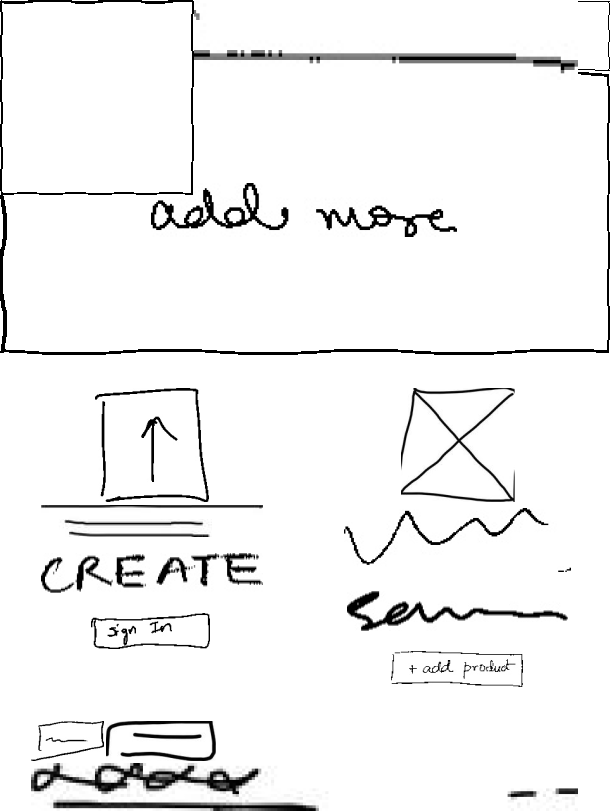 add more
CREATE
Sign In
+ add product